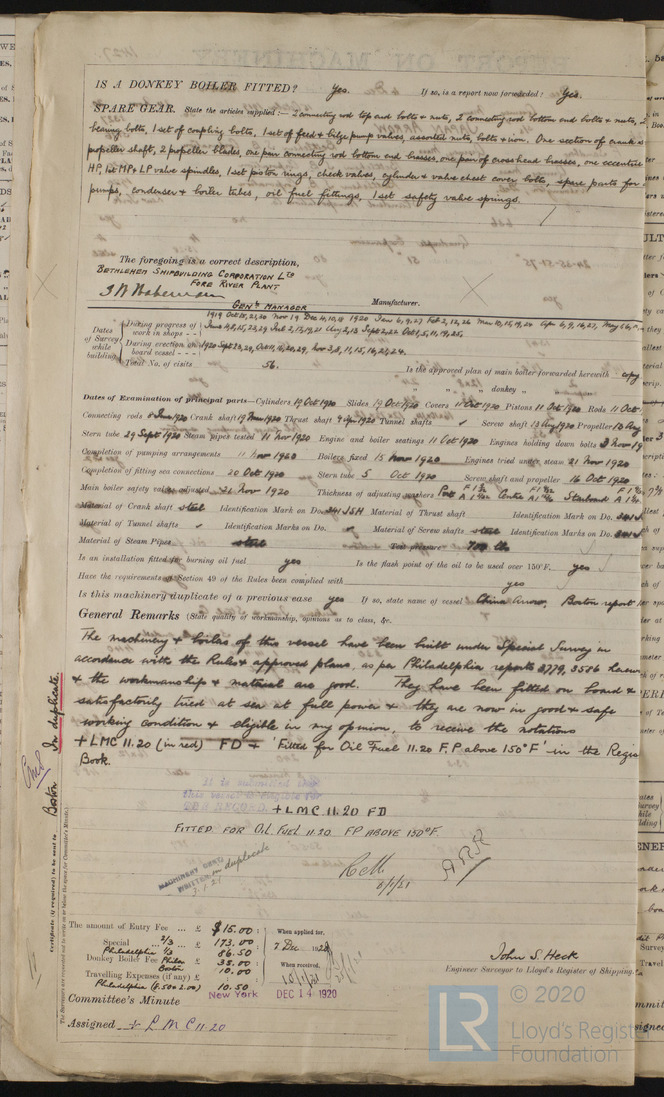 IS A DONKEY BOILER FITTED? Yes. If so, is a report now forwarded? Yes.
SPARE GEAR. State the articles supplied:— 2 connecting rod top end bolts & nuts, 2 connecting rod bottom end bolts & nuts, 2
bearing bolts, 1 set of coupling bolts, 1 set of feed & bilge pump valves, assorted nuts, bolts & iron. One section of crank s
propeller shaft, 2 propeller blades, one pair connecting rod bottom end brasses, one pair of crosshead brasses, one eccentric
HP, 1st MP & LP valve spindles, 1 set piston rings, check valves, cylinder & valve chest cover bolts, spare parts for
pumps, condenser & boiler tubes, oil fuel fittings, 1 set safety valve springs.
The foregoing is a correct description,
BETHLEHEM SHIPBUILDING CORPORATION LTD
FORE RIVER PLANT
GENL MANAGER Manufacturer.
Dates of Survey while building
During progress of work in shops - - 1919 Oct 15, 21, 30 Nov 19 Dec 4, 10, 14 1920 Jan 6, 9, 27 Feb 2, 12, 26 Mar 10, 15, 19, 24 Apr 6, 9, 16, 27, May
During erection on board vessel - - - 1920 Sept 23, 29, Oct 11, 16, 20, 29, Nov 3, 8, 11, 15, 16, 21, 24.
Total No. of visits 56. Is the approved plan of main boiler forwarded herewith copy
" " " donkey "
Dates of Examination of principal parts—Cylinders 19 Oct 1920 Slides 19 Oct 1920 Covers 11 Oct 1920 Pistons 11 Oct 1920 Rods 11 Oct
Connecting rods 8 June 1920 Crank shaft 19 Nov 1920 Thrust shaft 9 Apr 1920 Tunnel shafts Screw shaft 13 Aug 1920 Propeller 16 Aug
Stern tube 29 Sept 1920 Steam pipes tested 11 Nov 1920 Engine and boiler seatings 11 Oct 1920 Engines holding down bolts 3 Nov 19
Completion of pumping arrangements 11 Nov 1920 Boilers fixed 15 Nov 1920 Engines tried under steam 21 Nov 1920
Completion of fitting sea connections 20 Oct 1920 Stern tube 5 Oct 1920 Screw shaft and propeller 16 Oct 1920
Main boiler safety valves adjusted 21 Nov 1920 Thickness of adjusting washers Port Centre Starboard
Material of Crank shaft steel Identification Mark on Do. 341 JSH Material of Thrust shaft Identification Mark on Do. 341 J
Material of Tunnel shafts Identification Marks on Do. Material of Screw shafts steel Identification Marks on Do. 341 J
Material of Steam Pipes steel Test pressure 700 lb
Is an installation fitted for burning oil fuel yes Is the flash point of the oil to be used over 150°F. yes
Have the requirements of Section 49 of the Rules been complied with yes
Is this machinery duplicate of a previous case yes If so, state name of vessel China Arrow, Boston report
General Remarks (State quality of workmanship, opinions as to class, &c.
The machinery & boilers of this vessel have been built under Special Survey in
accordance with the Rules & approved plans, as per Philadelphia reports 3779, 3586
& the workmanship & material are good. They have been fitted on board &
satisfactorily tried at sea at full power & they are now in good & safe
working condition & eligible in my opinion, to receive the notations
+LMC 11.20 (in red) FD & 'Fitted for Oil Fuel 11.20 F.P above 150°F' in the Regis
Book.
It is submitted that
this vessel is eligible for
THE RECORD. +LMC 11.20 FD
FITTED FOR OIL FUEL 11.20 FP ABOVE 150°F.
MACHINERY CERT.
WRITTEN in duplicate
Certificate (if required) to be sent to Boston In duplicate.
(The Surveyors are requested not to write on or below the space for Committee's Minute.)
The amount of Entry Fee ... £ $15.00 : When applied for,
Special 2/3 ... £ 173.00 : 7 Dec 1920
Philadelphia 1/3 86.50
Donkey Boiler Fee Phila £ 35.00 : When received,
Boston 10.00
Travelling Expenses (if any) £
Philadelphia 10.50
John S. Heck
Engineer Surveyor to Lloyd's Register of Shipping.
Committee's Minute New York DEC 14 1920
Assigned + LMC 11.20
LR © 2020
Lloyd's Register
Foundation